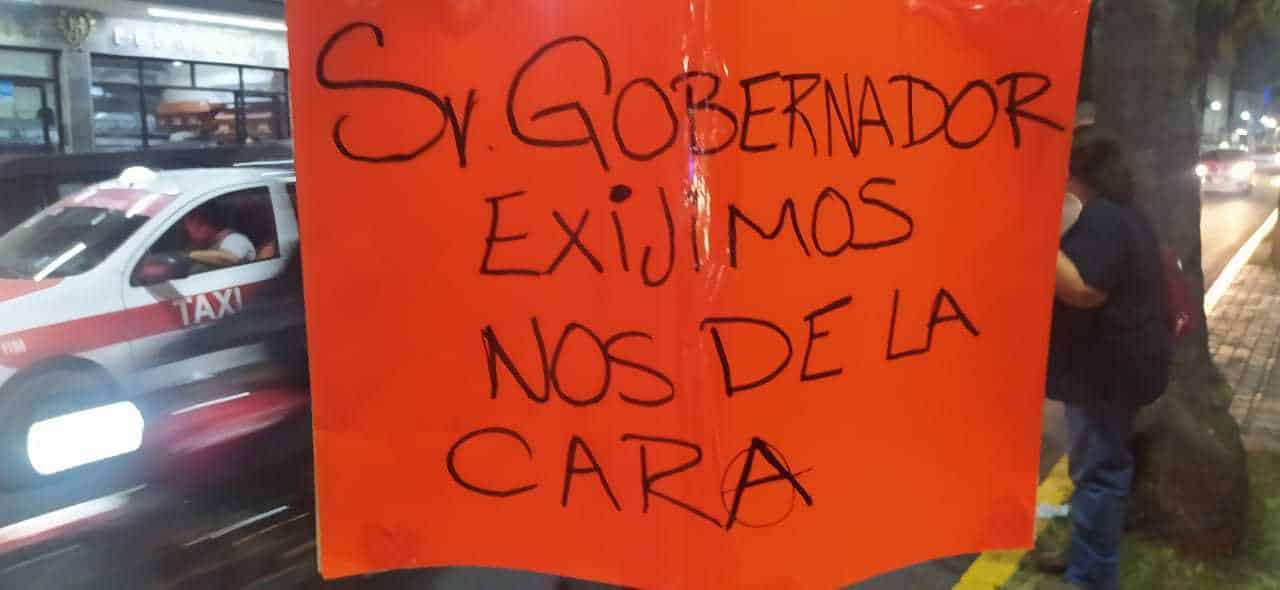 Sr. GOBERNADOR
EXIJIMOS
NOS DE LA
CARA
TAXI